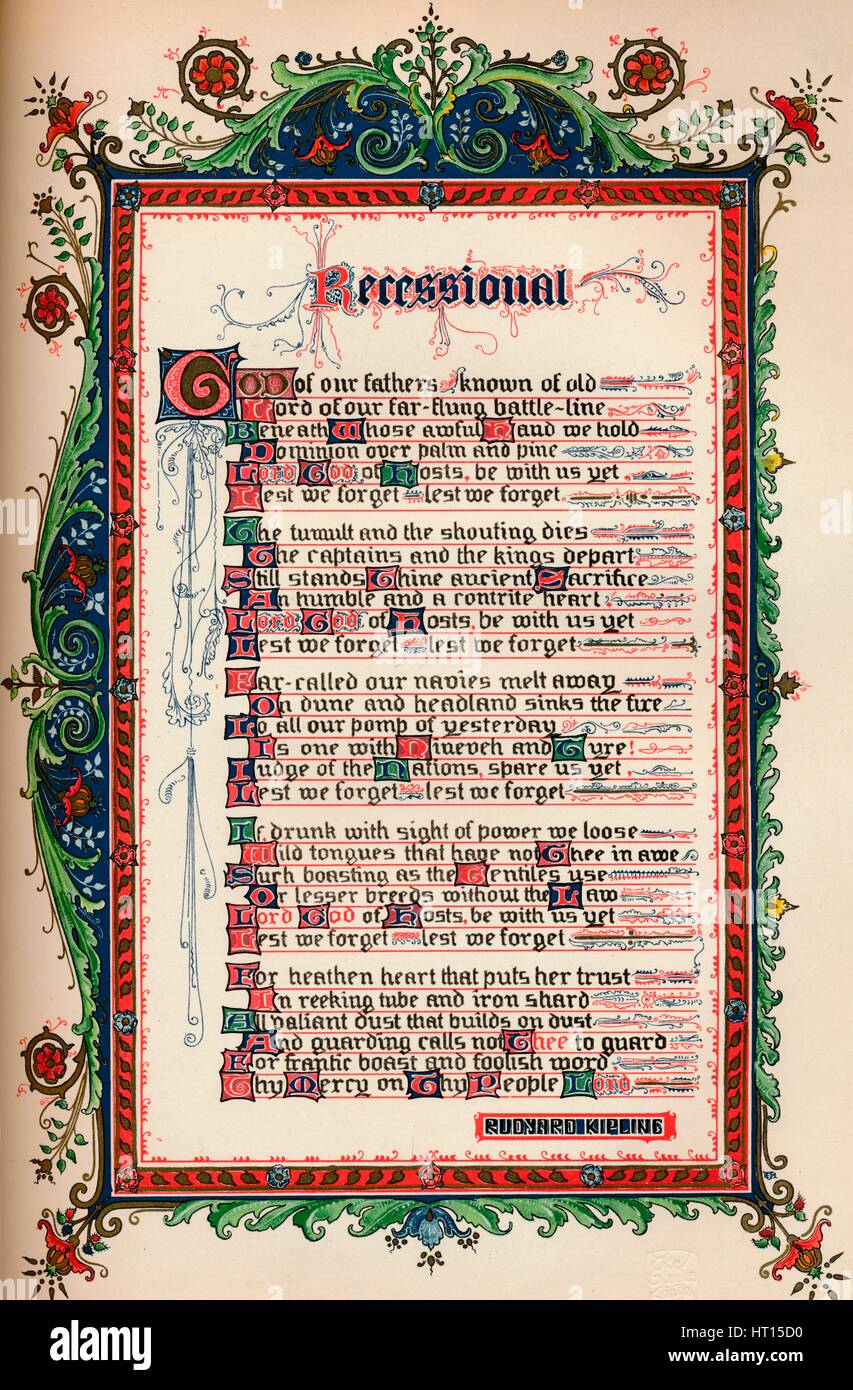 Recessional
God of our fathers known of old
Lord of our far-flung battle-line
Beneath Whose awful Hand we hold
Dominion over palm and pine
Lord God of Hosts, be with us yet
Lest we forget lest we forget
The tumult and the shouting dies
The captains and the kings depart
Still stands Thine ancient Sacrifice
An humble and a contrite heart
Lord God of Hosts, be with us yet
Lest we forget lest we forget
Far-called our navies melt away
On dune and headland sinks the fire
Lo all our pomp of yesterday
Is one with Nineveh and Tyre!
Judge of the Nations, spare us yet
Lest we forget lest we forget
If drunk with sight of power we loose
Wild tongues that have not Thee in awe
Such boasting as the Gentiles use
Or lesser breeds without the Law
Lord God of Hosts, be with us yet
Lest we forget lest we forget
For heathen heart that puts her trust
In reeking tube and iron shard
All valiant dust that builds on dust
And guarding calls not Thee to guard
For frantic boast and foolish word
Thy Mercy on Thy People Lord
RUDYARD KIPLING
a alamy stock photo
alamy
HT15D0
www.alamy.com